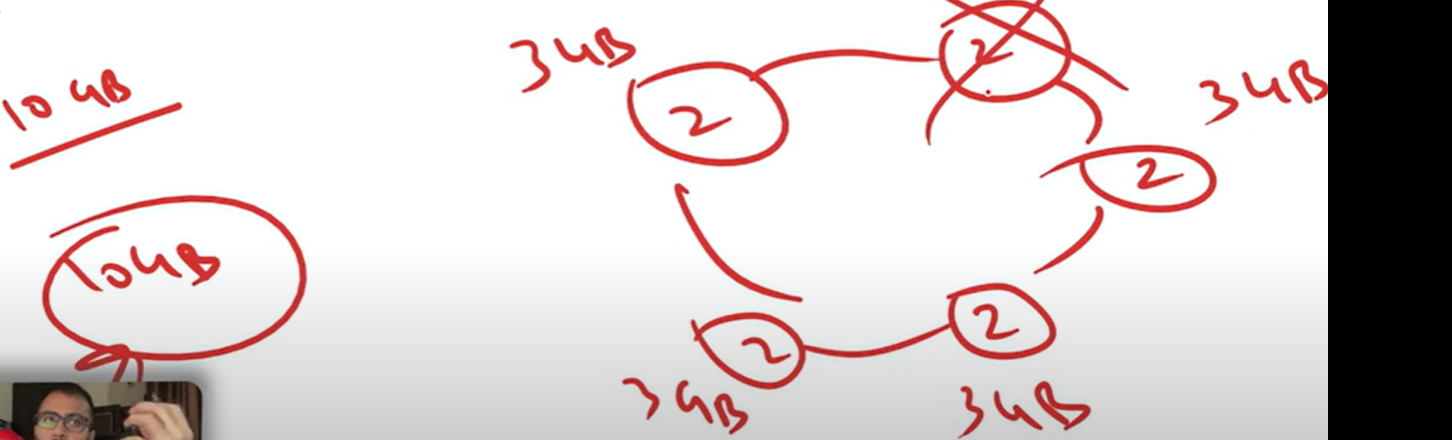 10 GB
10GB
3GB
2
2
3GB
2
2
3GB
2
3GB